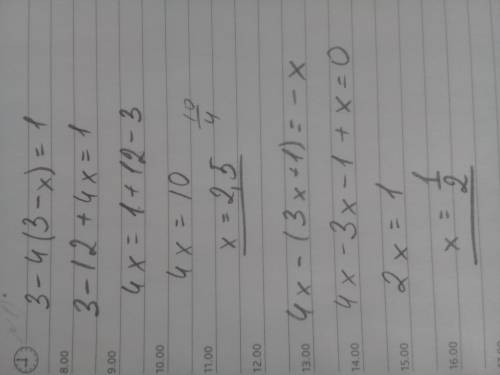 3-4(3-x)=1
3-12+4x=1
4x=1+12-3
4x=10
10/4
x=2,5
4x-(3x+1)=-x
4x-3x-1+x=0
2x=1
x=1/2
8.00
9.00
10.00
11.00
12.00
13.00
14.00
15.00
16.00